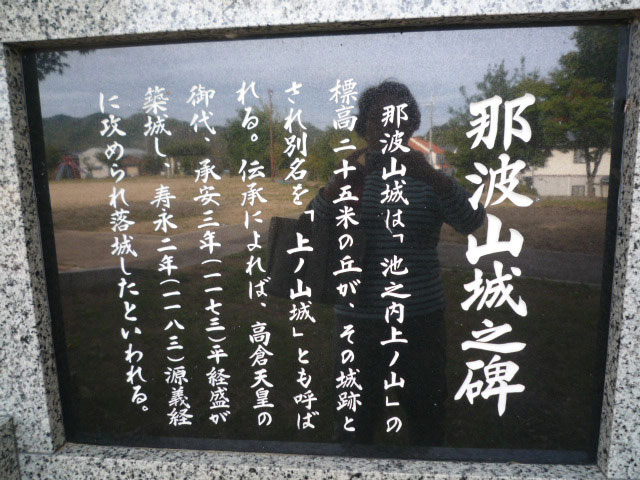 那波山城之碑
那波山城は「池之内上ノ山」の
標高二十五米の丘が、その城跡と
され別名を「上ノ山城」とも呼ば
れる。伝承によれば、高倉天皇の
御代、承安三年(一一七三)平経盛が
築城し 寿永二年(一一八三)源義経
に攻められ落城したといわれる。